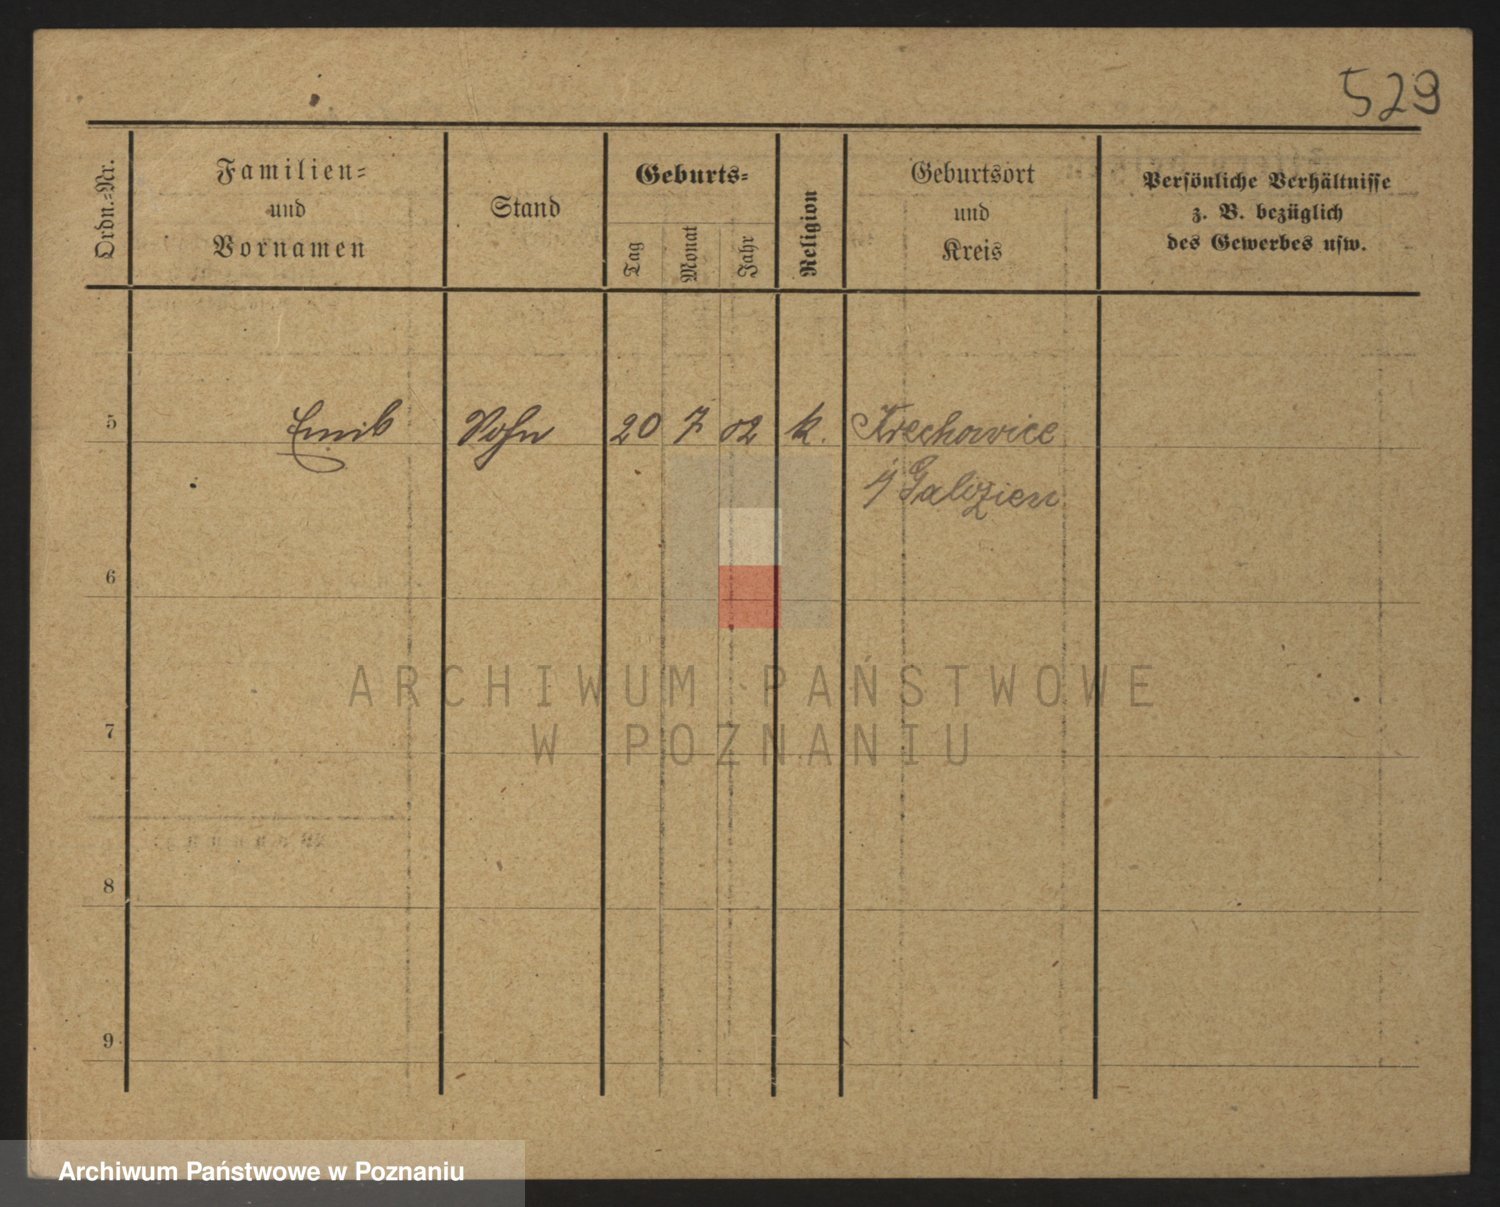 529
Ordn.-Nr.
Familien-
und
Vornamen
Stand
Geburts-
Tag
Monat
Jahr
Religion
Geburtsort
und
Kreis
Persönliche Verhältnisse
z. B. bezüglich
des Gewerbes usw.
5 Emil Sohn 20 7 02 k. Krechowice
i/ Galizien
6
7
8
9
ARCHIWUM PAŃSTWOWE
W POZNANIU
Archiwum Państwowe w Poznaniu